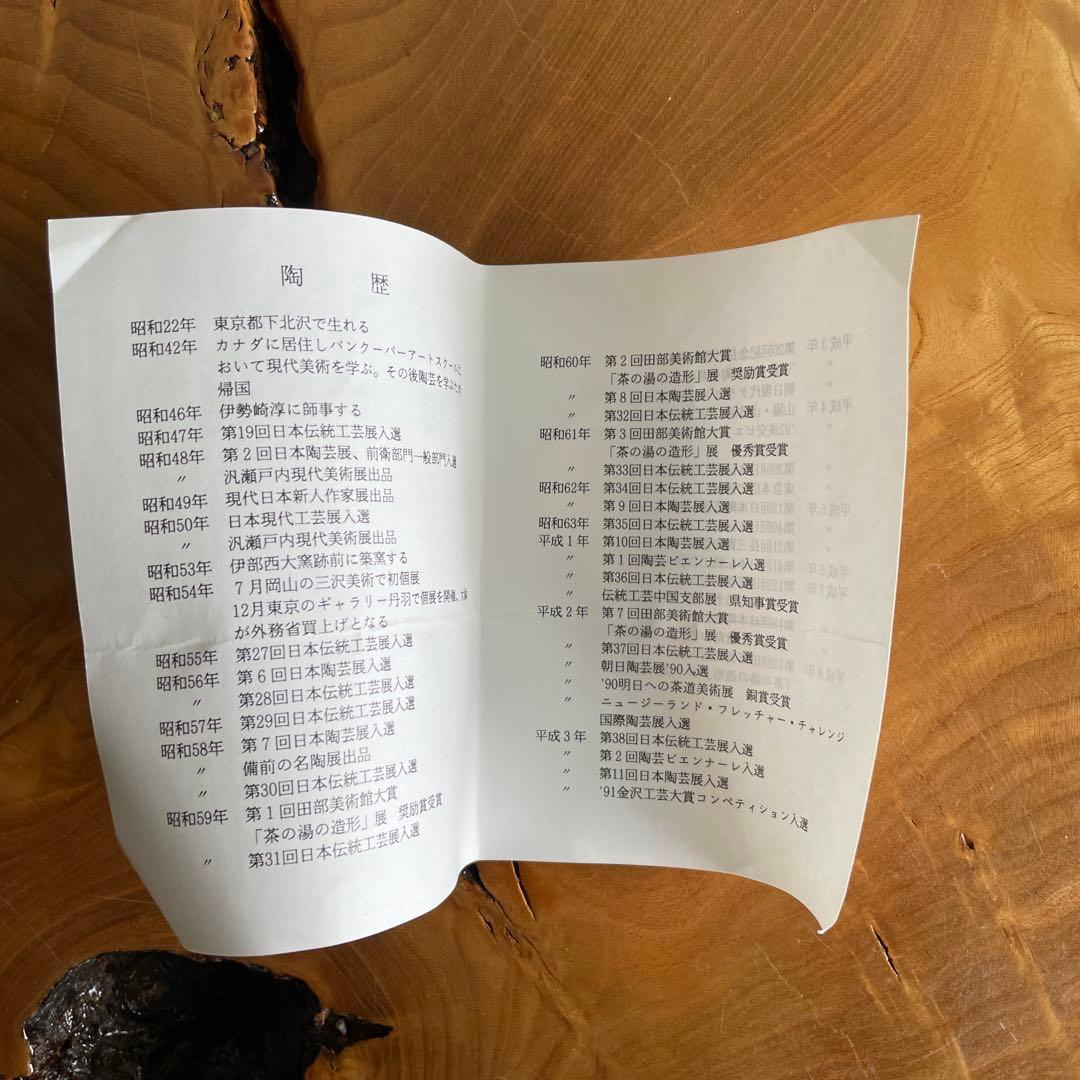 陶歴
昭和22年 東京都下北沢で生れる
昭和42年 カナダに居住しバンクーバーアートスクールに
おいて現代美術を学ぶ。その後陶芸を学ぶため
帰国
昭和46年 伊勢崎淳に師事する
昭和47年 第19回日本伝統工芸展入選
昭和48年 第2回日本陶芸展、前衛部門一般部門入選
〃 汎瀬戸内現代美術展出品
昭和49年 現代日本新人作家展出品
昭和50年 日本現代工芸展入選
〃 汎瀬戸内現代美術展出品
昭和53年 伊部西大窯跡前に築窯する
昭和54年 7月岡山の三沢美術で初個展
12月東京のギャラリー丹羽で個展を開催、大鉢
が外務省買上げとなる
昭和55年 第27回日本伝統工芸展入選
昭和56年 第6回日本陶芸展入選
第28回日本伝統工芸展入選
昭和57年 第29回日本伝統工芸展入選
昭和58年 第7回日本陶芸展入選
〃 備前の名陶展出品
〃 第30回日本伝統工芸展入選
昭和59年 第1回田部美術館大賞
「茶の湯の造形」展 奨励賞受賞
〃 第31回日本伝統工芸展入選
昭和60年 第2回田部美術館大賞
「茶の湯の造形」展 奨励賞受賞
〃 第8回日本陶芸展入選
〃 第32回日本伝統工芸展入選
昭和61年 第3回田部美術館大賞
「茶の湯の造形」展 優秀賞受賞
〃 第33回日本伝統工芸展入選
昭和62年 第34回日本伝統工芸展入選
〃 第9回日本陶芸展入選
昭和63年 第35回日本伝統工芸展入選
平成1年 第10回日本陶芸展入選
〃 第1回陶芸ビエンナーレ入選
〃 第36回日本伝統工芸展入選
〃 伝統工芸中国支部展 県知事賞受賞
平成2年 第7回田部美術館大賞
「茶の湯の造形」展 優秀賞受賞
〃 第37回日本伝統工芸展入選
〃 朝日陶芸展'90入選
〃 '90明日への茶道美術展 銅賞受賞
〃 ニュージーランド・フレッチャー・チャレンジ
国際陶芸展入選
平成3年 第38回日本伝統工芸展入選
〃 第2回陶芸ビエンナーレ入選
〃 第11回日本陶芸展入選
〃 '91金沢工芸大賞コンペティション入選